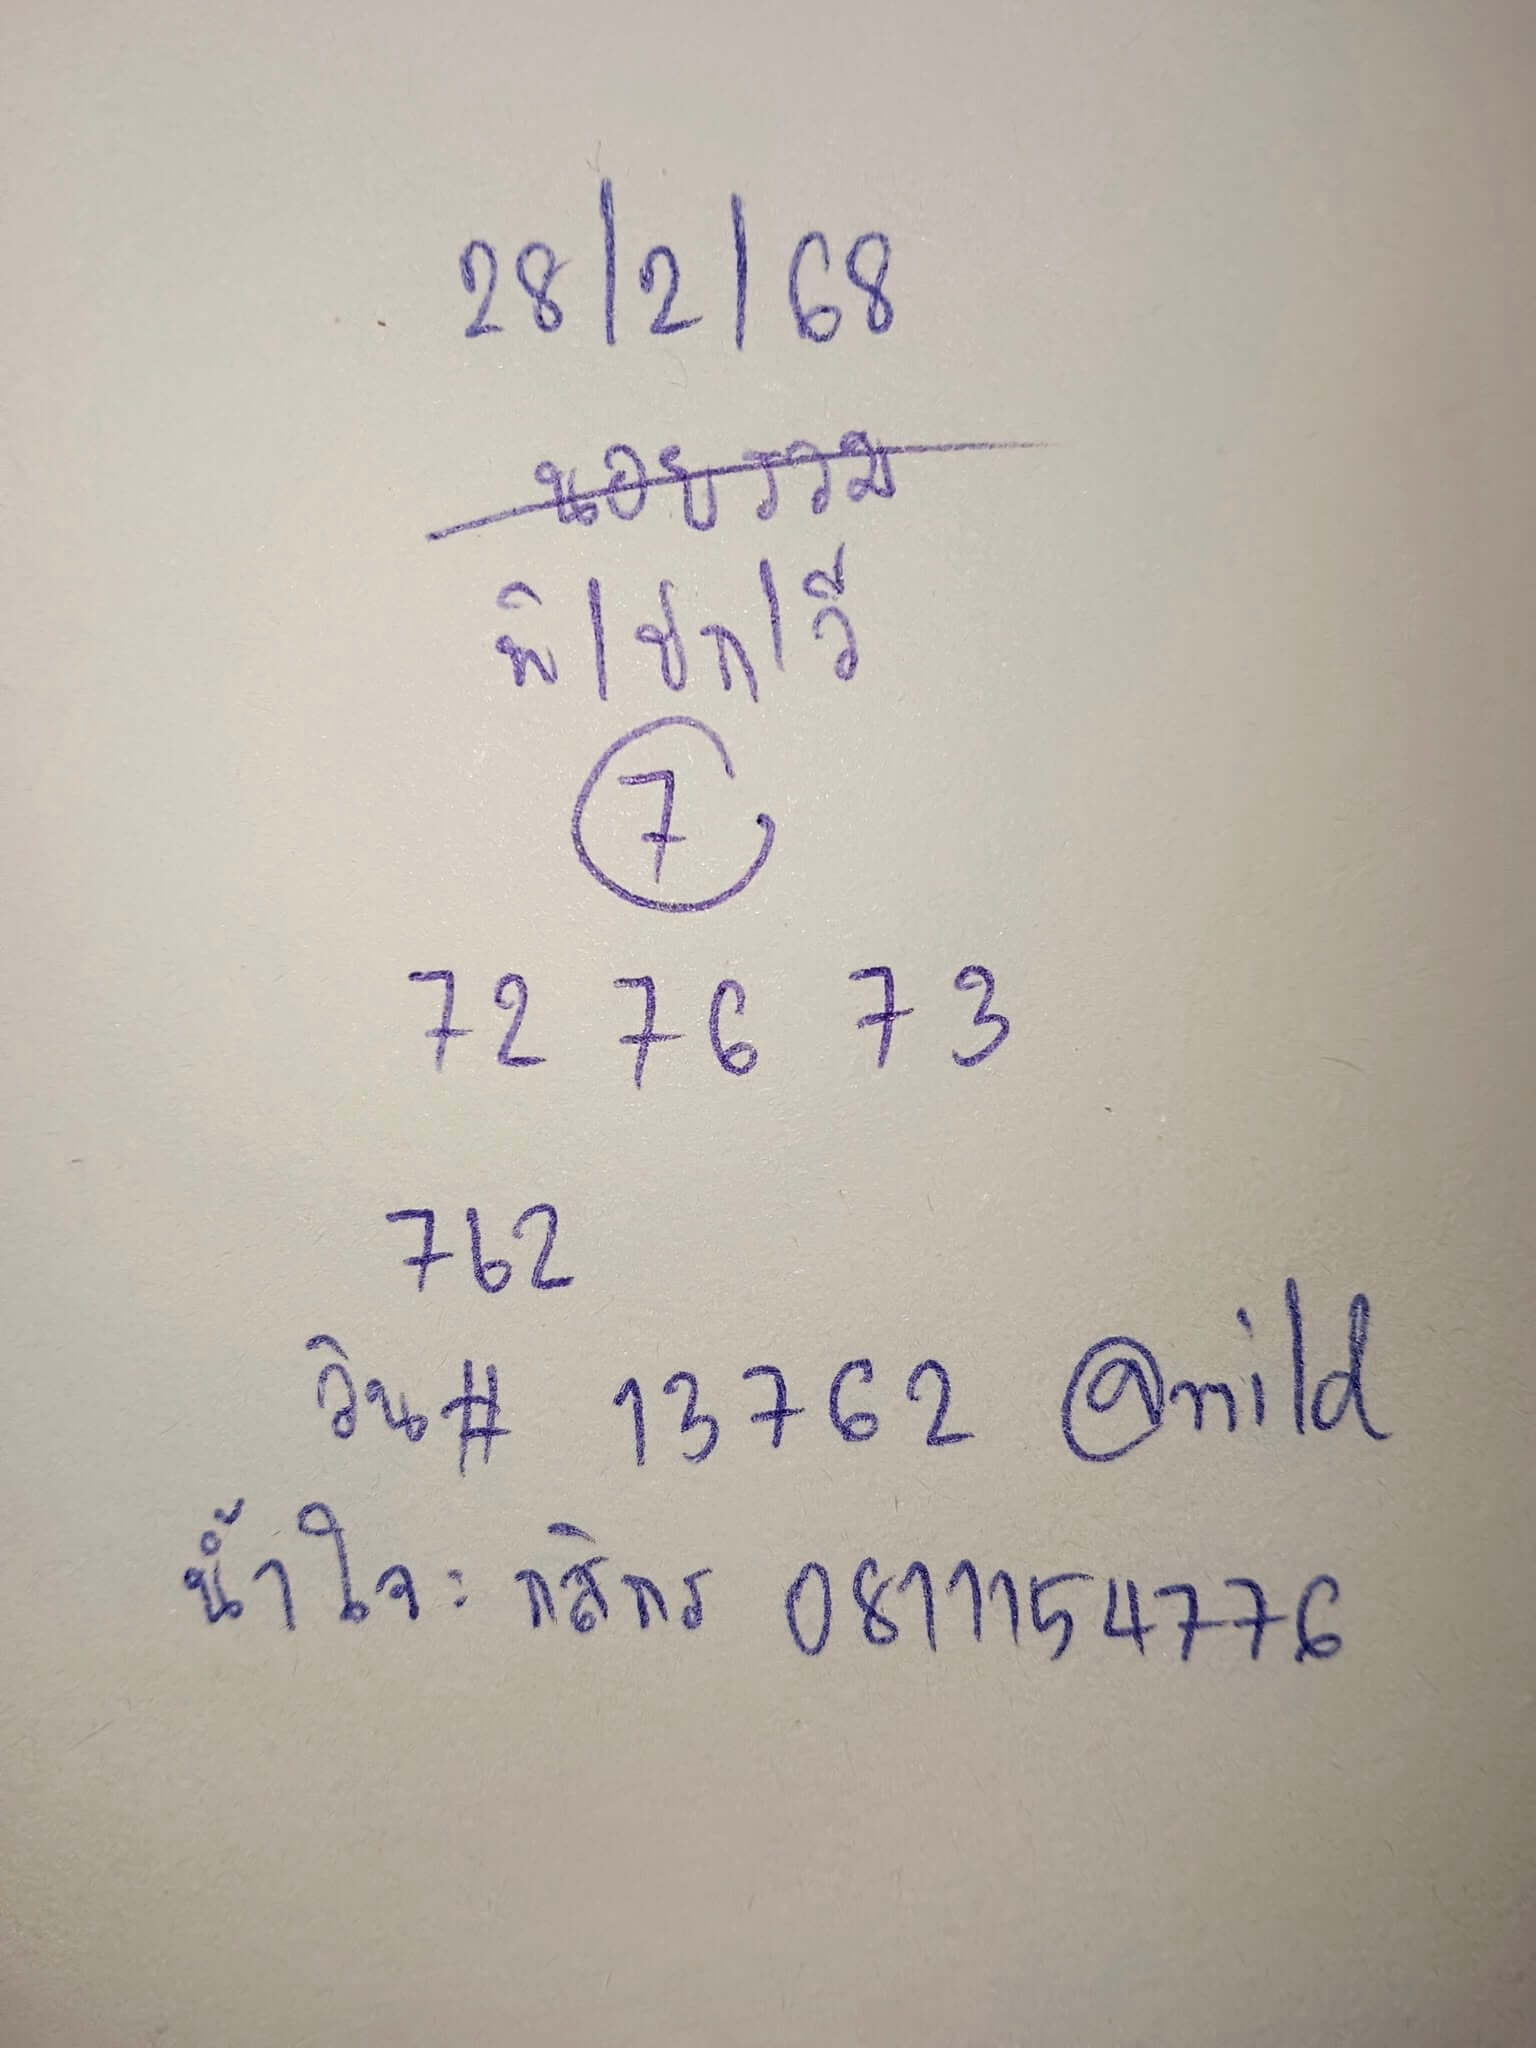 28/2/68
นอยรวม
พิ/ปก/วี
7
72 76 73
762
วิน# 13762 @mild
น้ำใจ: กสิกร 0811154776